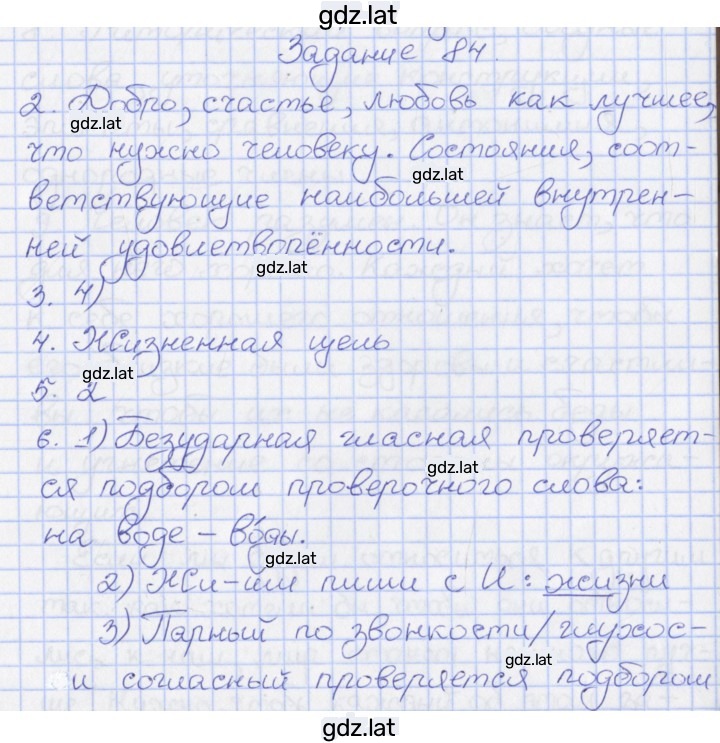 gdz.lat
Задание 84.
2. Добро, счастье, любовь как лучшее,
gdz.lat
что нужно человеку. Состояния, соот-
gdz.lat
ветствующие наибольшей внутрен-
ней удовлетворённости.
gdz.lat
3. 4)
4. Жизненная цель
gdz.lat
5. 2
6. 1) Безударная гласная проверяет-
gdz.lat
ся подбором проверочного слова:
на воде – во́ды.
gdz.lat
2) Жи-ши пиши с И: жизни
3) Парный по звонкости/глухос-
gdz.lat
и согласный проверяется подбором
gdz.lat